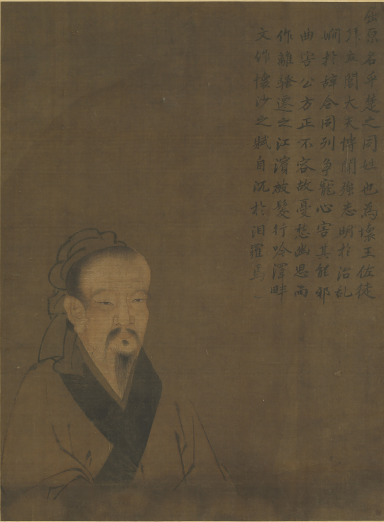 屈原名平楚之同姓也為懷王佐徒
作三閭大夫博聞彊志明於治亂
嫻於辭令同列爭寵心害其能邪
曲害公方正不容故憂愁幽思而
作離騷遷之江濱被髮行吟澤畔
又作懷沙之賦自沉於汨羅焉